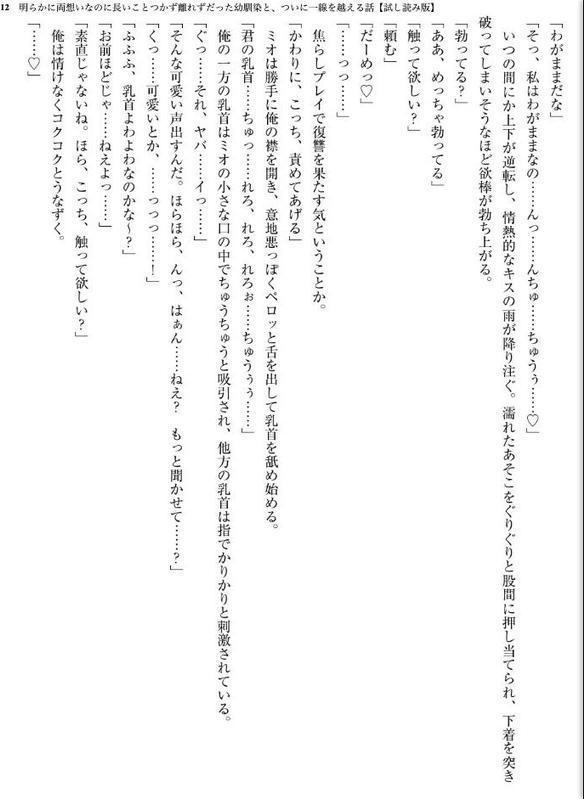 12　明らかに両想いなのに長いことつかず離れずだった幼馴染と、ついに一線を越える話【試し読み版】
「わがままだな」
「そっ、私はわがままなの……んっ……んちゅ……ちゅうぅ……♡」
　いつの間にか上下が逆転し、情熱的なキスの雨が降り注ぐ。濡れたあそこをぐりぐりと股間に押し当てられ、下着を突き
破ってしまいそうなほど欲棒が勃ち上がる。
「勃ってる？」
「ああ、めっちゃ勃ってる」
「触って欲しい？」
「頼む」
「だーめっ♡」
「……っっ……」
　焦らしプレイで復讐を果たす気ということか。
「かわりに、こっち、責めてあげる」
　ミオは勝手に俺の襟を開き、意地悪っぽくペロッと舌を出して乳首を舐め始める。
「君の乳首……ちゅっ……れろ、れろ、れろぉ……ちゅうぅぅ……」
　俺の一方の乳首はミオの小さな口の中でちゅうちゅうと吸引され、他方の乳首は指でかりかりと刺激されている。
「ぐっ……それ、ヤバ……イっ……」
「そんな可愛い声出すんだ。ほらほら、んっ、はぁん……ねえ？　もっと聞かせて……？」
「くっ……可愛いとか、……っっっ……！」
「ふふふ、乳首よわよわなのかな〜？」
「お前ほどじゃ……ねえよっ……」
「素直じゃないね。ほら、こっち、触って欲しい？」
　俺は情けなくコクコクとうなずく。
「……♡」